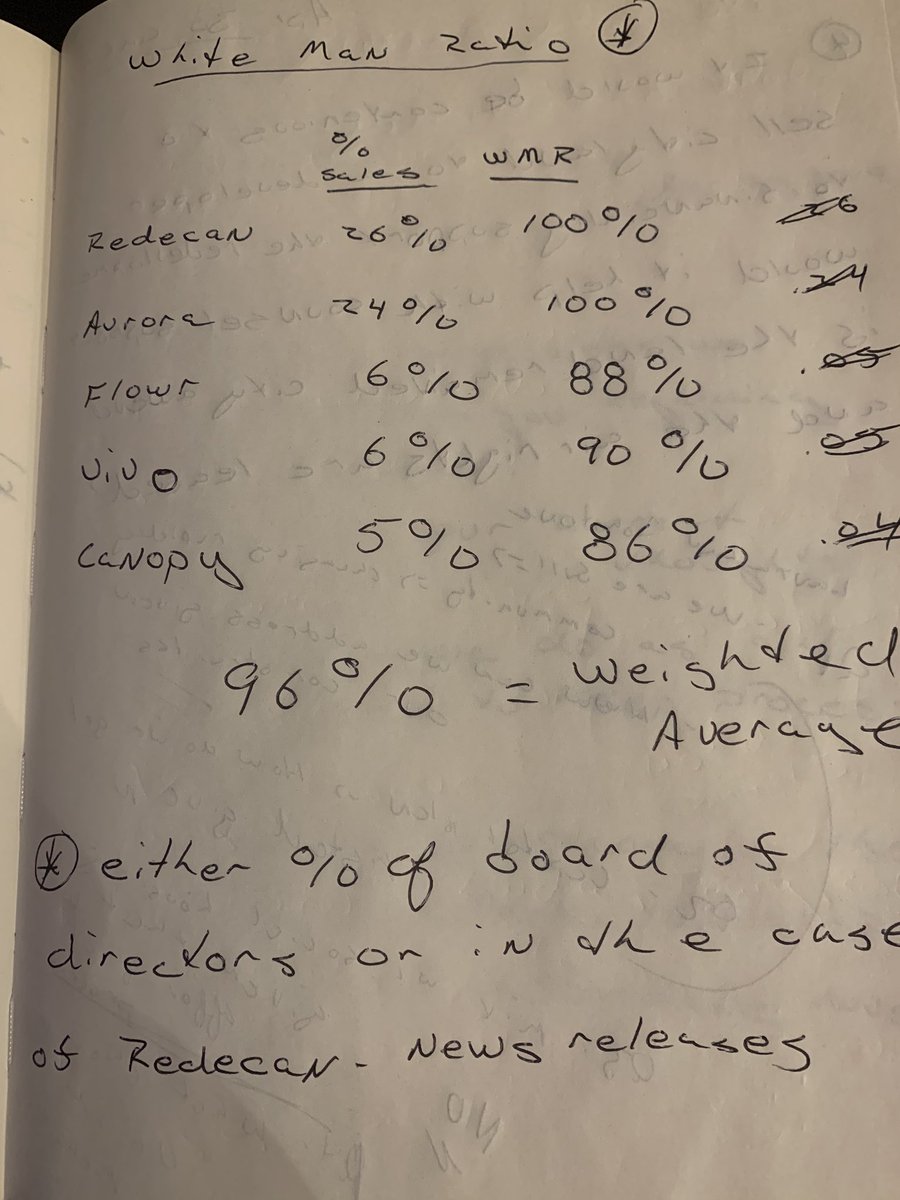 White Man Ratio *
%
sales WMR
Redecan 26% 100% .26
Aurora 24% 100% .24
Flowr 6% 88% .05
UiUO 6% 90% .05
Canopy 5% 86% .04
96% = Weighted
Average
* either % of board of
directors or in the case
of Redecan - News releases